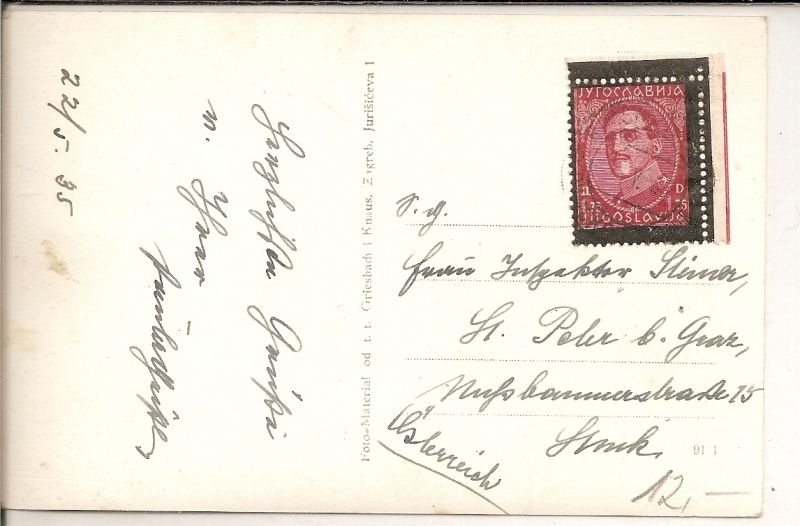 22/5. 35
Herzlichste Grüße
v. Ihrer
Foto=Materijal od t. t. Griesbach i Knaus, Zagreb, Jurišićeva 1
ЈУГОСЛАВИЈА
Д. D
1.75 1.75
JUGOSLAVIJA
S. g.
Frau Inspektor Slima,
St. Peter b. Graz,
Nussbaumerstraße 15
Österreich
12,—